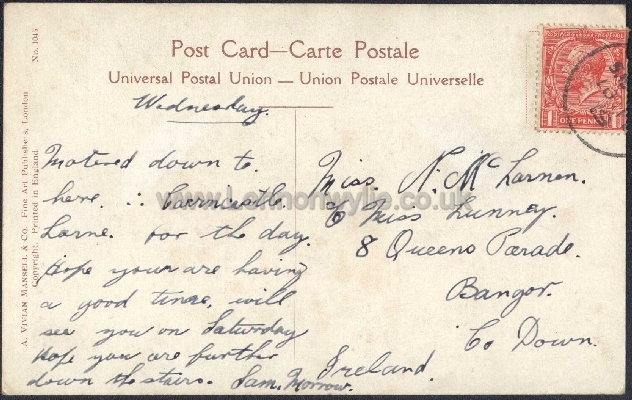 Post Card—Carte Postale
Universal Postal Union — Union Postale Universelle
A. Vivian Mansell & Co. Fine Art Publishers, London
Copyright. Printed in England. No. 1045
Wednesday.
Motored down to
here. ∴ Cairncastle
Larne. for the day.
Hope you are having
a good time, will
see you on Saturday
Hope you are further
down the stairs. Sam. Morrow.
Miss. N. Mc Larnon.
c/o Miss Lunney.
8 Queens Parade.
Bangor.
Co Down.
Ireland.
ONE PENNY
www.Lennonwylie.co.uk